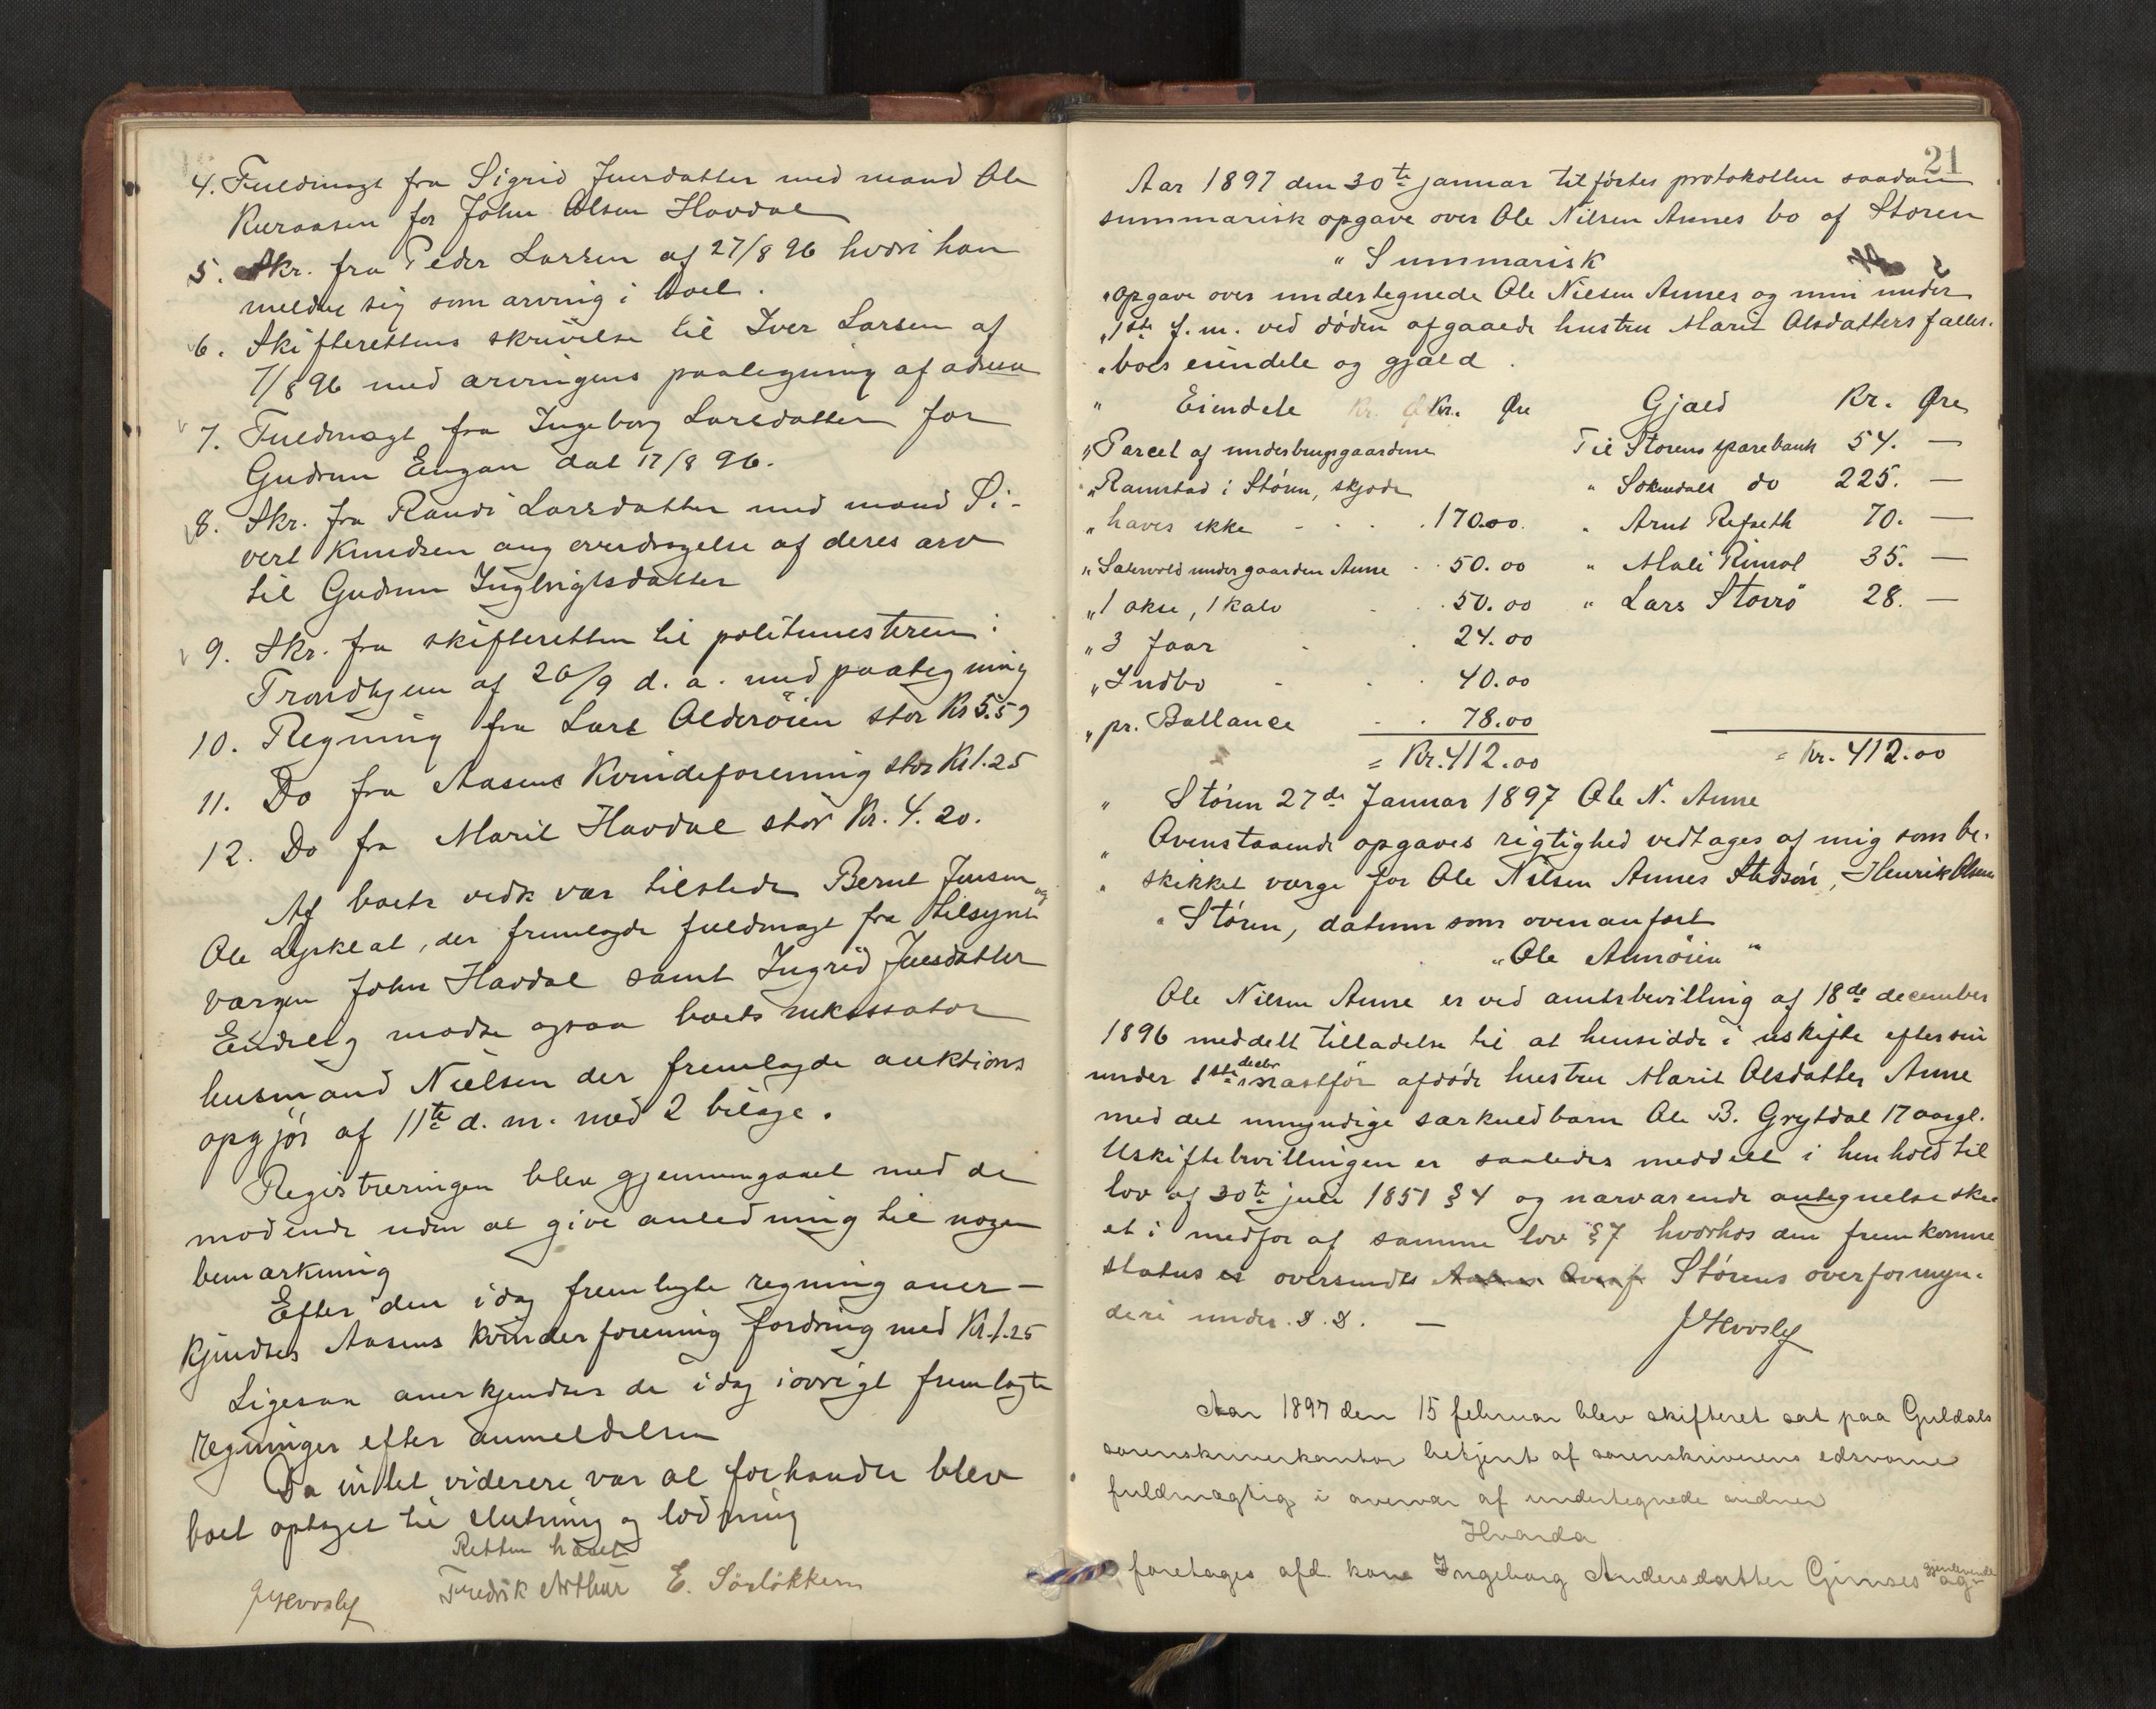 4. Fuldmagt fra Sigrid Jensdatter med mand Ole
for John Olsen Havdal
5. Skr. fra Peder Larsen af 27/8 96 hvori han
melder sig som arving i boet.
6. Skifterettens skrivelse til Iver Larsen af
7/8 96 med arvingens paategning af
7. Fuldmagt fra Ingeborg Larsdatter for
Gudrun Engan dat 17/8 96.
8. Skr. fra Randi Larsdatter med mand Si-
vert Knudsen ang overdragelse af deres arv
til Gudrun Ingbrigtsdatter
9. Skr. fra skifteretten til politimesteren i
Trondhjem af 26/9 d. a. med paategning
10. Regning fra Lars Alderøien stor Kr 5.59
11. Do fra Aasens Kvindeforening stor Kr 1.25
12. Do fra Marit Havdal stor Kr. 4.20.
Af boets vedk var tilstede Bernt Jensen og
Ole, der fremlagde fuldmagt fra tilsyns
værgen John Havdal samt Ingrid Jensdatter
Endelig mødte ogsaa boets inkassator
husmand Nielsen der fremlagde auktions
opgjør af 11te d. m. med 2 bilage.
Registreringen blev gjennemgaaet med de
mødende uden at give anledning til nogen
bemærkning
Efter den idag fremlagte regning aner-
kjendtes Aasens Kvinderforening fordring med Kr. 1.25
Ligesaa anerkjendtes de idag iøvrigt fremlagte
regninger efter anmeldelsen
Da intet videre var at forhandle blev
boet optaget til slutning og lodning
Retten hævet
Fredrik Arthur E. Sörlökken
21
Aar 1897 den 30te januar tilførtes protokollen saadan
summarisk opgave over Ole Nilsen Annes bo af Støren
" Summarisk
" opgave over undertegnede Ole Nielsen Annes og min under
" 1ste f. m. ved døden afgaaede hustru Marit Olsdatters fælles-
" boes eiendele og gjæld.
" Eiendele Kr. Øre Gjæld Kr. Øre
" Parcel af underbrugsgaardene Til Størens sparebank 54. —
" Ramstad i Støren, skjøde " Soknedals do 225. —
" haves ikke 170.00. " Arnt Refseth 70. —
" Sætervold under gaarden Anne 50.00 " Mali Rimol 35. —
" 1 okse, 1 kalv 50.00 " Lars Storrö 28. —
" 3 faar 24.00
" Indbo 40.00
" pr. Ballance 78.00
= Kr. 412.00 = Kr. 412.00
" Støren 27de Januar 1897 Ole N. Anne
" Ovenstaaende opgaves rigtighed vedtages af mig som be-
" skikket værge for Ole Nilsen Annes Stedsøn, Henrik Olsen
" Støren, datum som ovenanført
" Ole Almöien "
Ole Nilsen Anne er ved amtsbevilling af 18de december
1896 meddelt tilladelse til at hensidde i uskifte efter sin
under 1ste decbr næstfør afdøde hustru Marit Olsdatter Anne
med det umyndige særkuldbarn Ole B. Grytdal 17 aargl.
Uskiftebevillingen er saaledes meddelt i henhold til
lov af 30te juli 1851 § 4 og nærværende antegnelse ske-
et i medfør af samme lov § 7 hvorhos den fremkomne
status er oversendt Størens overformyn-
deri under. D. D. —
Aar 1897 den 15 februar blev skifteret sat paa Guldals
sorenskriverkontor betjent af sorenskriverens edsvorne
fuldmægtig i overvær af undertegnede vidner
Hvorda
foretages afd. kone Ingeborg Andersdatter Gimses gjenlevende og